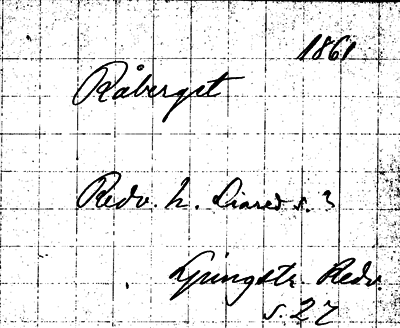 1861
Råberget
Redv. h. Liared s. 3
Ljungstr. Redv.
s. 27